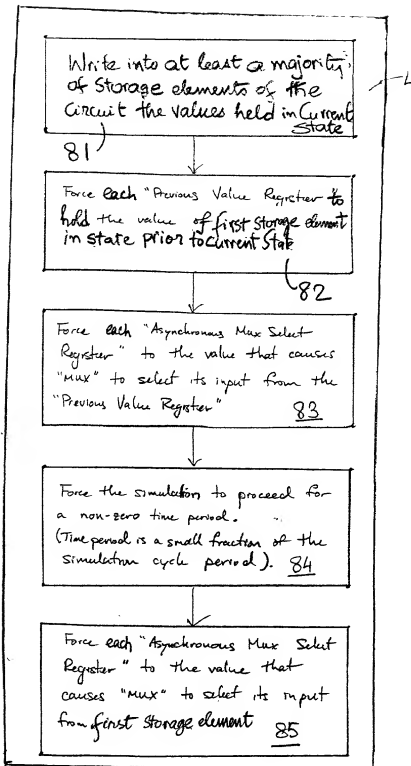 Write into at least a majority
of Storage elements of the
Circuit the values held in Current
State
81
Force each "Previous Value Register" to
hold the value of first storage element
in state prior to Current State
82
Force each "Asynchronous Mux Select
Register" to the value that causes
"Mux" to select its input from the
"Previous Value Register"
83
Force the simulation to proceed for
a non-zero time period.
(Time period is a small fraction of the
simulation cycle period). 84
Force each "Asynchronous Mux Select
Register" to the value that
causes "MUX" to select its input
from first storage element
85